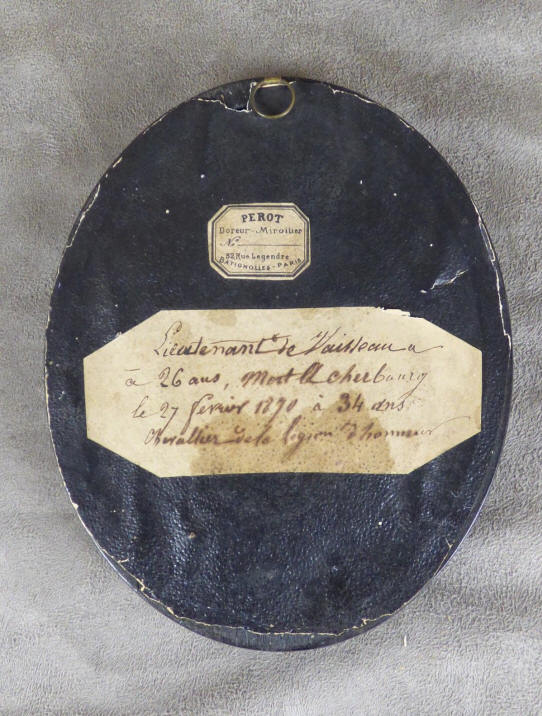 PEROT
Doreur-Miroitier
No
82 Rue Legendre
BATIGNOLLES-PARIS
Lieutenant de Vaisseau a
à 26 ans, Mort à cherbourg
le 27 fevrier 1890 à 34 ans
Chevallier de la legion d'honneur